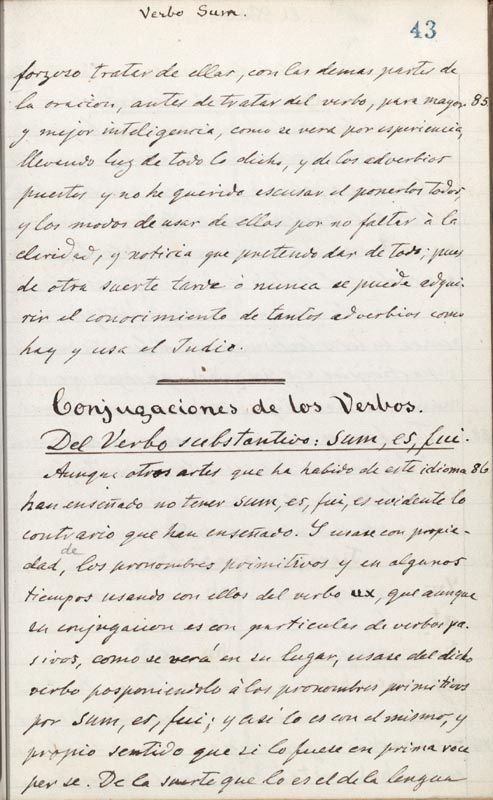 Verbo Sum.
43
forzoso tratar de ellas, con las demas partes de
la oracion, antes de tratar del verbo, para mayor 85
y mejor inteligencia, como se vera por esperiencia,
llevando luz de todo lo dicho, y de los adverbios
puestos y no he querido escusar el ponerlos todos,
y los modos de usar de ellas por no faltar à la
claridad, y noticia que pretendo dar de todo; pues
de otra suerte tarde ò nunca se puede adqui-
rir el conocimiento de tantos adverbios como
hay y usa el Indio.
Conjugaciones de los Verbos.
Del Verbo substantivo: Sum, es, fui.
Aunque otros artes que ha habido de este idioma 86
han enseñado no tener Sum, es, fui, es evidente lo
contrario que han enseñado. Y usase con propie-
dad, de los pronombres primitivos y en algunos
tiempos usando con ellos del verbo ux, que aunque
su conjugacion es con particulas de verbos pa-
sivos, como se verá en su lugar, usase del dicho
verbo posponiendolo à los pronombres primitivos
por Sum, es, fui; y asi lo es con el mismo, y
propio sentido que si lo fuese en prima voce
per se. De la suerte que lo es el de la lengua